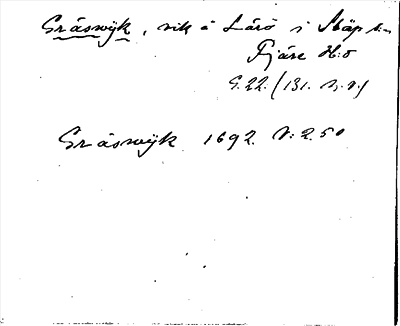 Gråswijk, vik å Lårö i Släp s:n
Fjäre H:d
G. 22. (131. n. v.)
Gråswijk 1692. N: 2. 50